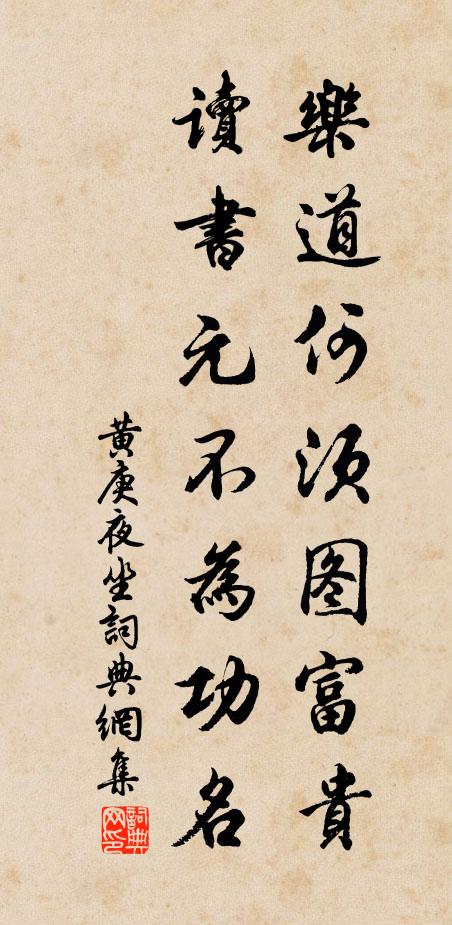 樂道何須图富貴
讀書元不為功名
黃庚夜坐詞典網集
詞典网印